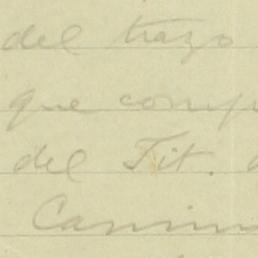 del trazo
que comp
del Tit. d
Camin